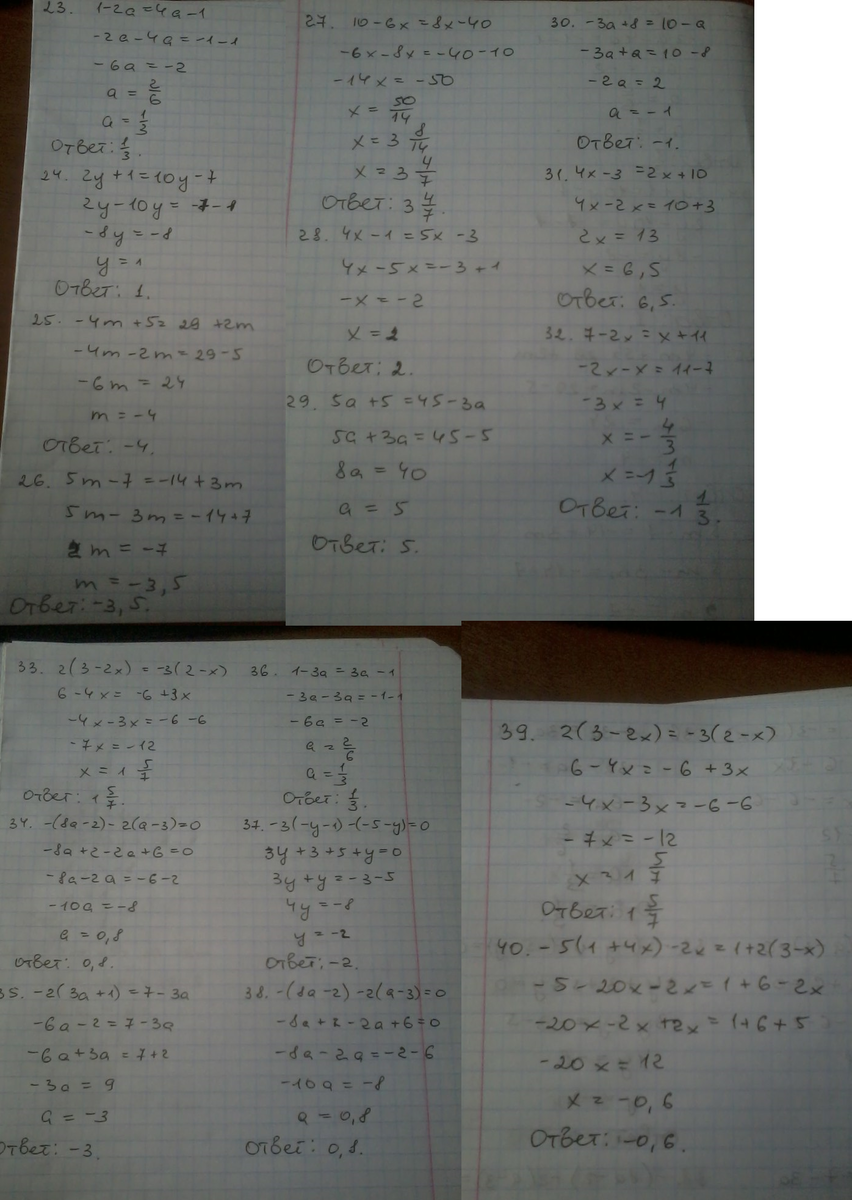 23. 1-2a=4a-1
-2a-4a=-1-1
-6a=-2
a = 2/6
a = 1/3
Ответ: 1/3.
24. 2y+1=10y-7
2y-10y=-7-1
-8y=-8
y=1
Ответ: 1.
25. -4m+5=29+2m
-4m-2m=29-5
-6m=24
m=-4
Ответ: -4.
26. 5m-7=-14+3m
5m-3m=-14+7
2m=-7
m=-3,5
Ответ: -3,5.
27. 10-6x=8x-40
-6x-8x=-40-10
-14x=-50
x = 50/14
x = 3 8/14
x = 3 4/7
Ответ: 3 4/7.
28. 4x-1=5x-3
4x-5x=-3+1
-x=-2
x=2
Ответ: 2.
29. 5a+5=45-3a
5a+3a=45-5
8a=40
a=5
Ответ: 5.
30. -3a+8=10-a
-3a+a=10-8
-2a=2
a=-1
Ответ: -1.
31. 4x-3=2x+10
4x-2x=10+3
2x=13
x=6,5
Ответ: 6,5.
32. 7-2x=x+11
-2x-x=11-7
-3x=4
x=- 4/3
x=-1 1/3
Ответ: -1 1/3.
33. 2(3-2x)=-3(2-x)
6-4x=-6+3x
-4x-3x=-6-6
-7x=-12
x=1 5/7
Ответ: 1 5/7.
34. -(8a-2)-2(a-3)=0
-8a+2-2a+6=0
-8a-2a=-6-2
-10a=-8
a=0,8
Ответ: 0,8.
35. -2(3a+1)=7-3a
-6a-2=7-3a
-6a+3a=7+2
-3a=9
a=-3
Ответ: -3.
36. 1-3a=3a-1
-3a-3a=-1-1
-6a=-2
a=2/6
a=1/3
Ответ: 1/3.
37. -3(-y-1)-(-5-y)=0
3y+3+5+y=0
3y+y=-3-5
4y=-8
y=-2
Ответ: -2.
38. -(8a-2)-2(a-3)=0
-8a+2-2a+6=0
-8a-2a=-2-6
-10a=-8
a=0,8
Ответ: 0,8.
39. 2(3-2x)=-3(2-x)
6-4x=-6+3x
-4x-3x=-6-6
-7x=-12
x=1 5/7
Ответ: 1 5/7
40. -5(1+4x)-2x=1+2(3-x)
-5-20x-2x=1+6-2x
-20x-2x+2x=1+6+5
-20x=12
x=-0,6
Ответ: -0,6.